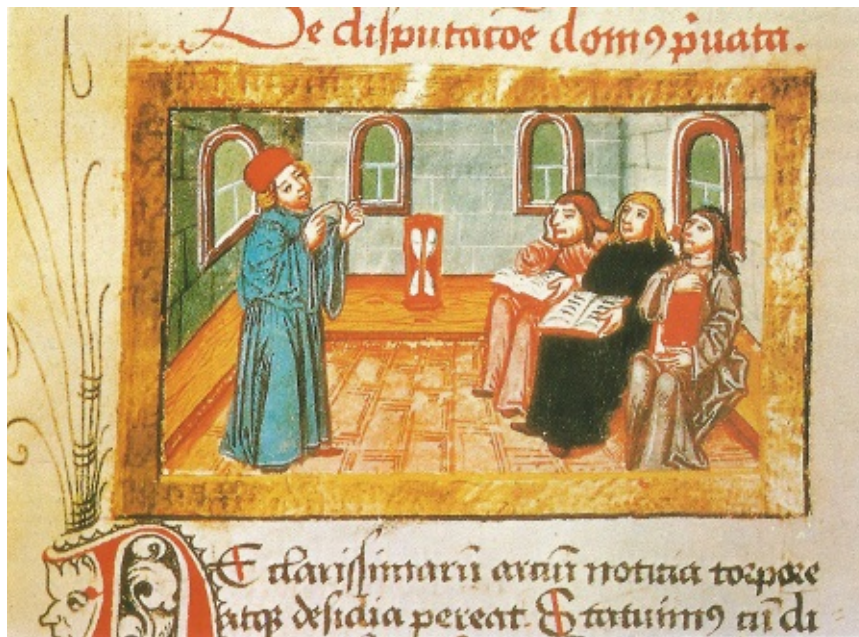 De disputatōe domꝯ p̄uata.
NE clarissimarū arciū noticia torpore
atqꝫ desidia pereat. Statuimꝯ cū di